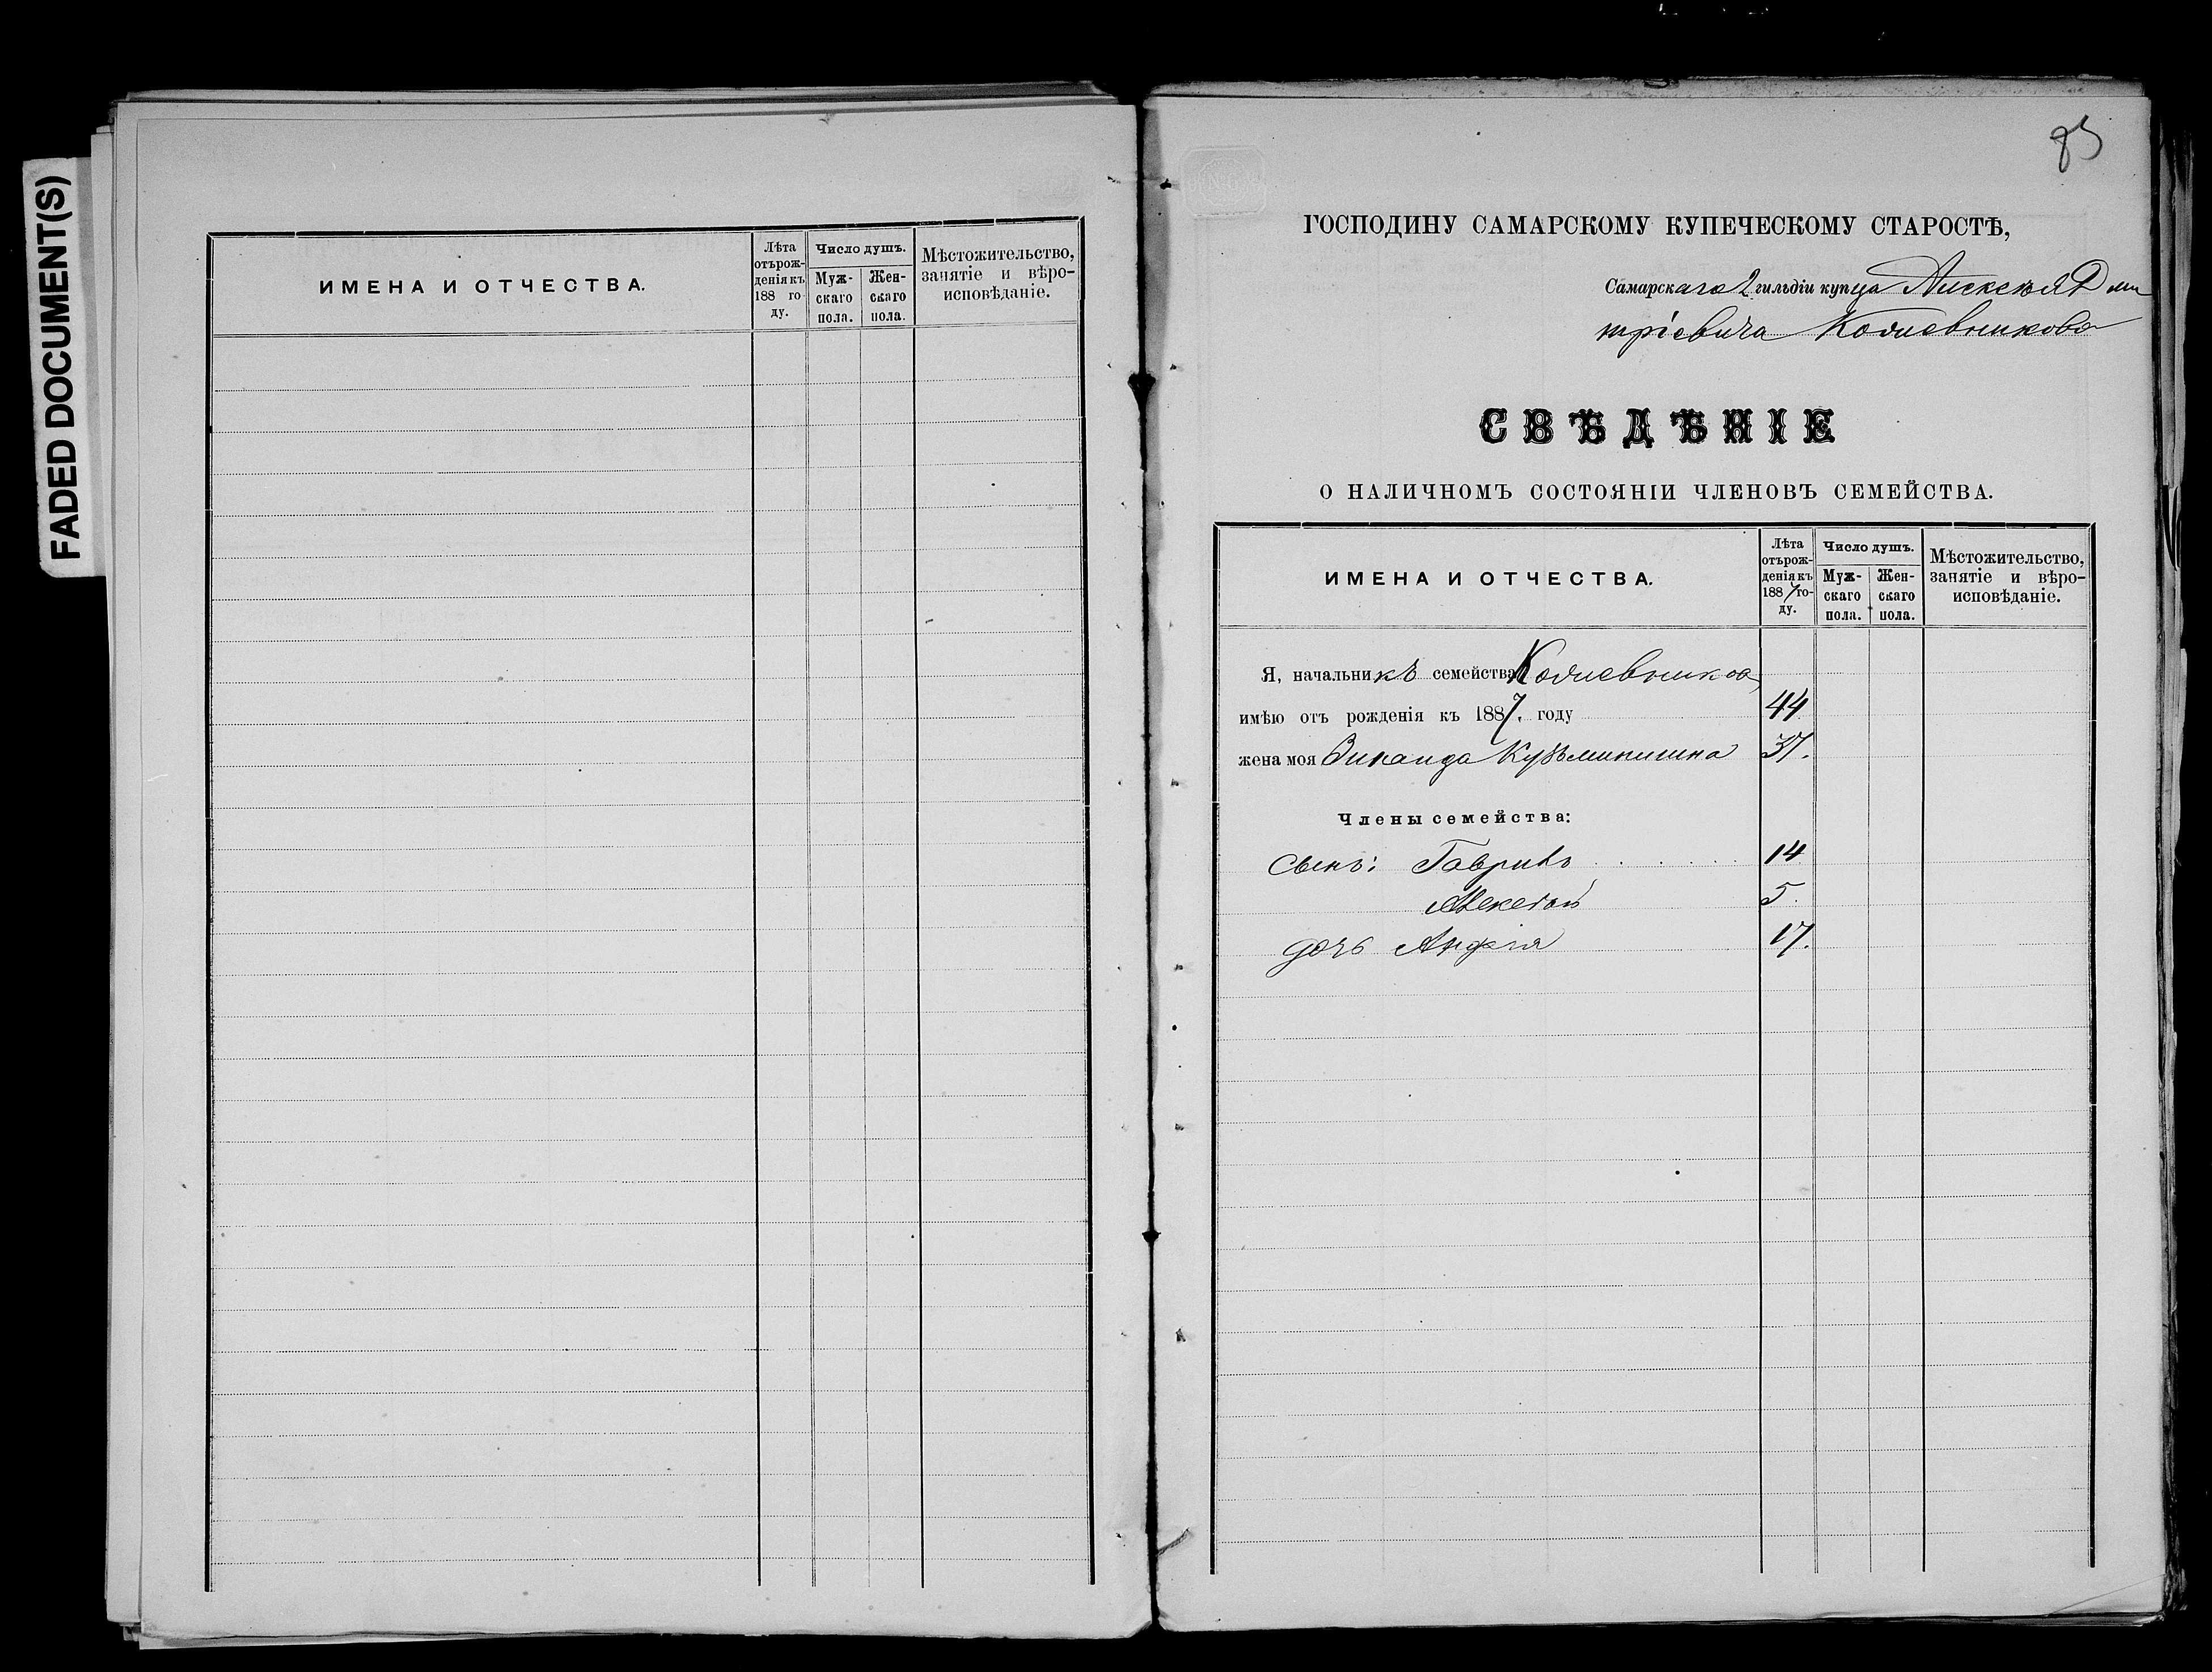 FADED DOCUMENT(S)
ИМЕНА И ОТЧЕСТВА.
Лѣта отърож-денія къ 188 го-ду.
Число душъ.
Муж-скаго пола.
Жен-скаго пола.
Мѣстожительство, занятіе и вѣро-исповѣданіе.
ГОСПОДИНУ САМАРСКОМУ КУПЕЧЕСКОМУ СТАРОСТѢ,
Самарскаго 2 гильдіи купца Алексѣя Дми
тріевича
СВѢДѢНІЕ
О НАЛИЧНОМЪ СОСТОЯНІИ ЧЛЕНОВЪ СЕМЕЙСТВА.
ИМЕНА И ОТЧЕСТВА.
Лѣта отърож-денія къ 1887 го-ду.
Число душъ.
Муж-скаго пола.
Жен-скаго пола.
Мѣстожительство, занятіе и вѣро-исповѣданіе.
Я, начальникъ семейства
имѣю отъ рожденія къ 1887. году 44
жена моя 37.
Члены семейства:
сынъ: Гаврилъ 14
Алексѣй 5.
дочь 17.